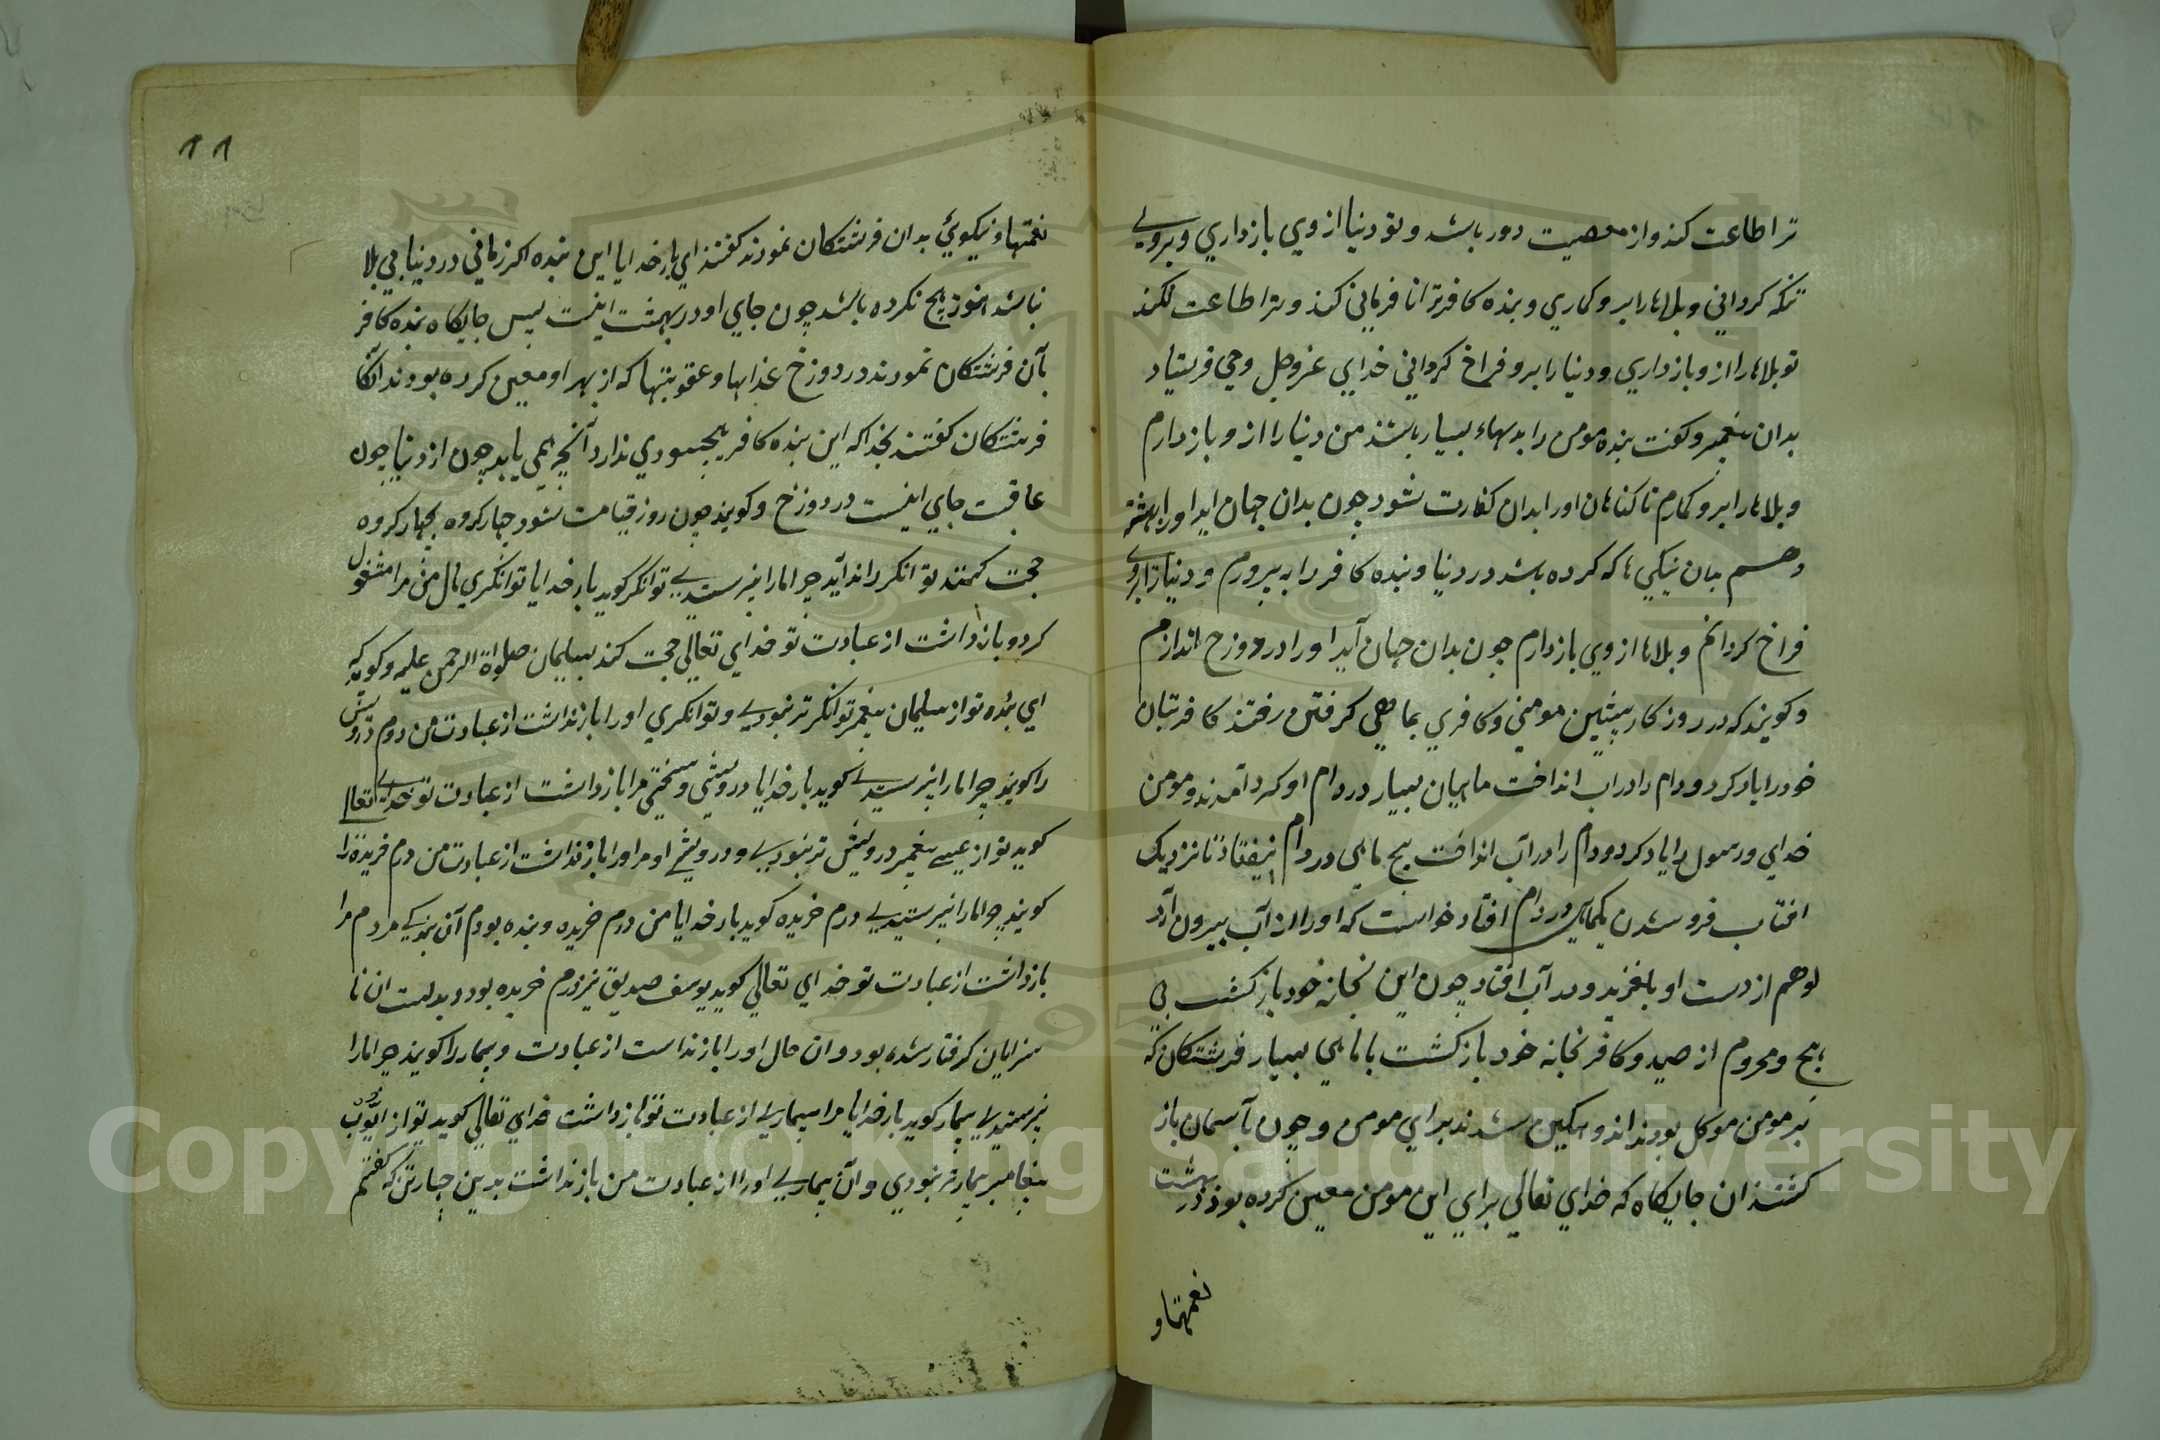 ترا طاعت کند و از معصیت دور باشد و تو دنیا از وی بازداری و بروی
تنکه کردانی و بلاها را برو کماری و بنده کافر ترا نافرمانی کند و ترا طاعت نکند
تو بلاها را از و بازداری و دنیا را برو فراخ کردانی خدای عز و جل وحی فرستاد
بدان پیغمبر و کفت بنده مومن را بدیهاء بسیار باشد من دنیا را از و بازدارم
و بلاها را برو کمارم تا کناهان او را بدان کفارت شود چون بدان جهان اید او را بهشت
دهم بدان نیکی ها که کرده باشد در دنیا و بنده کافر را به پرورم و دنیا را بروی
فراخ کردانم و بلاها از وی بازدارم چون بدان جهان آید او را در دوزخ اندازم
و کویند که در روزکار پیشین مومنی و کافری بماهی کرفتن رفتند کافر بتان
خود را یاد کرد و دام را در اب انداخت ماهیان بسیار در دام او کرد آمدند و مومن
خدای و رسول را یاد کرد و دام را در آب انداخت هیچ ماهی در دام نیفتاد تا نزدیک
افتاب فرو شدن یکماهی در دام افتاد خواست که او را از آب بیرون آرد
او هم از دست او بلغزید و در آب افتاد چون این بخانه خود باز کشت بی
هیچ و محروم از صید و کافر بخانه خود باز کشت با ماهی بسیار فرشتکان که
بر مومن موکل بودند اندوهکین شدند برای مومن و چون بآسمان باز
کشتند ان جایکاه که خدای تعالی برای این مومن معین کرده بود در بهشت
نعمتها و
11
نعمتها و نیکویی بدان فرشتکان نمودند کفتند ای بار خدایا این بنده اکر زمانی در دنیا بی بلا
نباشد هنوز هیچ نکرده باشد چون جای او در بهشت اینست پس جایکاه بنده کافر
بآن فرشتکان نمودند در دوزخ عذابها و عقوبتها که از بهر او معین کرده بودند آنکا
فرشتکان کفتند بخدا که این بنده کافر هیچ سودی ندارد آنچه همی یابد چون از دنیا چون
عاقبت جای اینست در دوزخ و کویند چون روز قیامت شود چهار کروه بچهار کروه
حجت کنند توانکر را ندا آید چرا ما را نپرستیدی توانکر کوید بار خدایا توانکری مال من مرا مشغول
کرد و بازداشت از عبادت تو خدای تعالی حجت کند بسلیمان صلواة الرحمن علیه و کوید که
ای بنده تو از سلیمان پیغمبر توانکرتر نبودی و توانکری او را باز نداشت از عبادت من دوم درویش
را کویند چرا ما را نپرستیدی کوید بار خدایا درویشی و سختی مرا بازداشت از عبادت تو خدای تعالی
کوید تو از عیسی پیغمبر درویش تر نبودی و درویشی او مر او را باز نداشت از عبادت من درم خریده را
کویند چرا ما را نپرستیدی درم خریده کوید بار خدایا من درم خریده و بنده بودم آن بندکی مردم مرا
بازداشت از عبادت تو خدای تعالی کوید یوسف صدیق نیز درم خریده بود و بدست ان نا
سزایان کرفتار شده بود و ان حال او را باز نداشت از عبادت و بیمار را کویند چرا ما را
نپرستیدی بیمار کوید بار خدایا مرا بیماری از عبادت تو بازداشت خدای تعالی کوید تو از ایوب
پیغامبر بیمارتر نبودی و آن بیماری او را از عبادت من باز نداشت بدین چهار تن که کفتم
Copyright © King Saud University